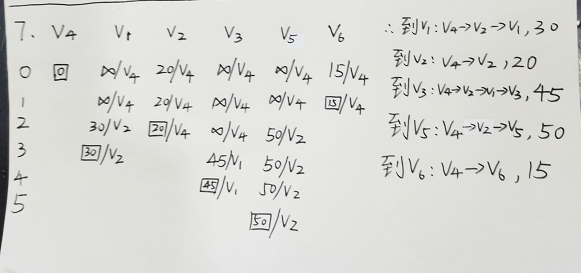 7. V4 V1 V2 V3 V5 V6
0 0 ∞/V4 20/V4 ∞/V4 ∞/V4 15/V4
1 ∞/V4 20/V4 ∞/V4 ∞/V4 15/V4
2 30/V2 20/V4 ∞/V4 50/V2
3 30/V2 45/V1 50/V2
4 45/V1 50/V2
5 50/V2
∴到V1:V4→V2→V1,30
到V2:V4→V2,20
到V3:V4→V2→V1→V3,45
到V5:V4→V2→V5,50
到V6:V4→V6,15